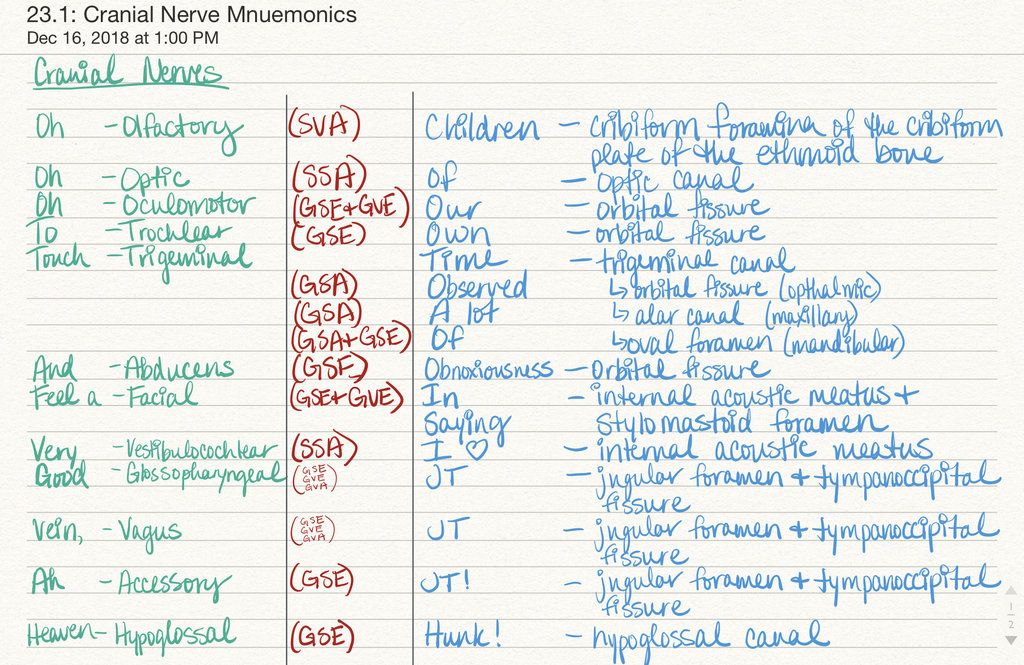 23.1: Cranial Nerve Mnuemonics
Dec 16, 2018 at 1:00 PM
Cranial Nerves
Oh - Olfactory (SVA) Children - cribiform foramina of the cribiform
plate of the ethmoid bone
Oh - Optic (SSA) Of - optic canal
Oh - Oculomotor (GSE+GVE) Our - orbital fissure
To - Trochlear (GSE) Own - orbital fissure
Touch - Trigeminal Time - trigeminal canal
(GSA) Observed ↳ orbital fissure (opthalmic)
(GSA) A lot ↳ alar canal (maxillary)
(GSA+GSE) Of ↳ oval foramen (mandibular)
And - Abducens (GSE) Obnoxiousness - Orbital fissure
Feel a - Facial (GSE+GVE) In - internal acoustic meatus +
Saying stylomastoid foramen
Very - Vestibulocochlear (SSA) I ♡ - internal acoustic meatus
Good - Glossopharyngeal (GSE GVE GVA) JT - jugular foramen + tympanoccipital
fissure
Vein, - Vagus (GSE GVE GVA) JT - jugular foramen + tympanoccipital
fissure
Ah - Accessory (GSE) JT! - jugular foramen + tympanoccipital
fissure
Heaven - Hypoglossal (GSE) Hunk! - hypoglossal canal
1
2